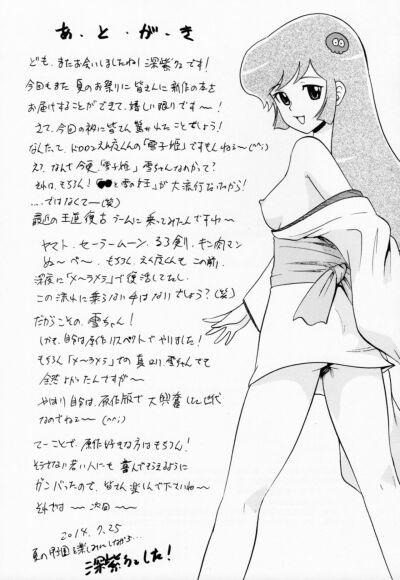 あ・と・が・き
ども、またお会いしましたね!深紫クです!
今回もまた夏のお祭りに皆さんに新作の本を
お届けすることができて、嬉しい限りです〜!
さて、今回の初に皆さん驚かれたことでしょう!
なんたって、ドロロンえん魔くんの「雪子姫」ですもんねぇ〜(^^;)
え?なんで今更、「雪子姫」雪ちゃんなのかって?
それは、もちろん!「●●と雪の女王」が大流行なったから!
……ではなくて—(笑)
最近の王道復古ブームに乗ってみたんですわ〜
ヤマト、セーラームーン、るろ剣、キン肉マン
ぬ〜べ〜、もちろん、えん魔くんもこの前、
深夜に「メ〜ラメラ」で復活してたし、
この流れに乗らない手はないでしょう?(笑)
だからこその、雪ちゃん!
しかも、自分は原作リスペクトでやりました!
もちろん「メ〜ラメラ」での雪ちゃんでも
全然よかったんですが〜
やはり自分は、原作版で大興奮した世代
なのでねぇ〜(^^;)
てーことで、原作好きな方はもちろん!
そうでない若い人にも喜んでもらえるように
ガンバったので、皆さん楽しんで下さいね〜
それでは〜次回〜
2014.7.25
夏の甲園を楽しみにしながら…
深紫クでした!